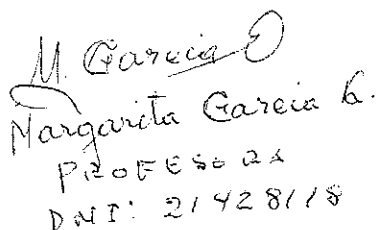 M. Garcia
Margarita Garcia G.
PROFESORA
DNI: 21428118